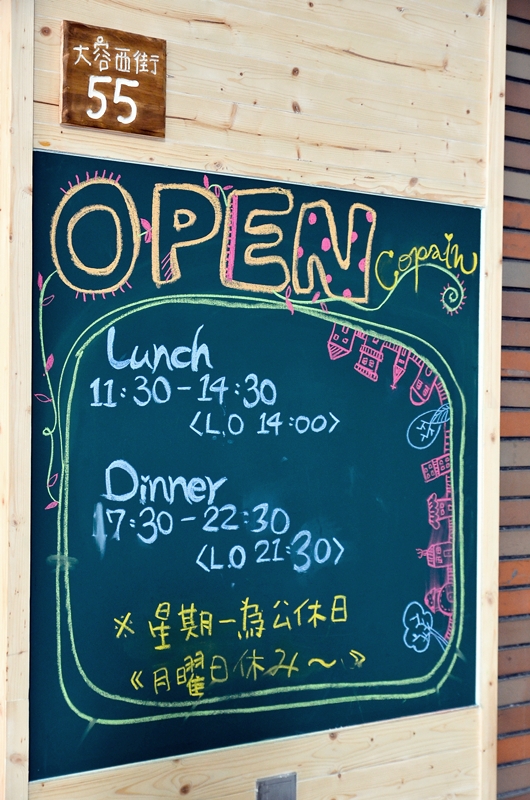 大容西街
55
OPEN
Copain
Lunch
11:30-14:30
<L.O 14:00>
Dinner
17:30-22:30
<L.O 21:30>
※星期一為公休日
《月曜日休み～》